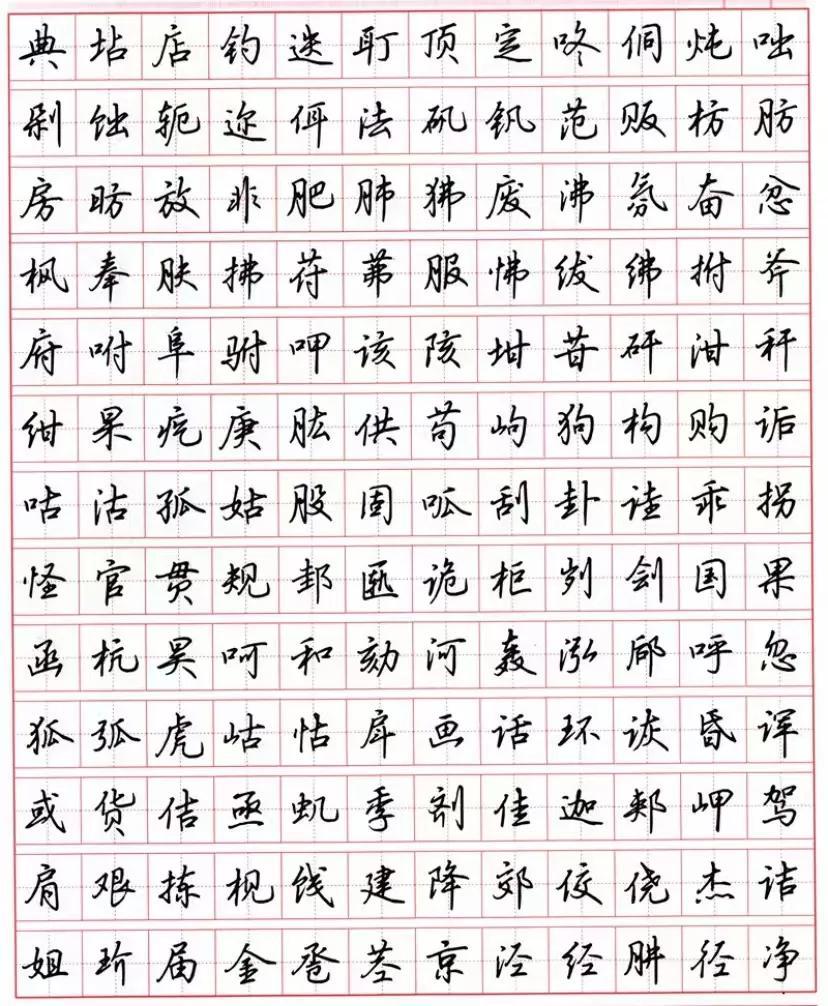 典坫店钓迭耵顶定咚侗炖咄
剁蚀轭迩佴法矾钒范贩枋肪
房昉放非肥肺狒废沸氛奋忿
枫奉肤拂苻茀服怫绂绋拊斧
府咐阜驸呷该陔坩苷矸泔秆
绀杲疙庚肱供苟岣狗构购诟
咕沽孤姑股固呱刮卦诖乖拐
怪官贯规邽匦诡柜刿刽国果
函杭昊呵和劾河轰泓郈呼忽
狐弧虎岵怙戽画话环诙昏诨
或货佶亟虮季剂佳迦郏岬驾
肩艰拣枧饯建降郊佼侥杰诘
姐玠届金卺茎京泾经肼径净